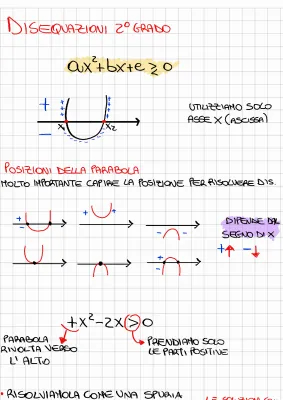 DISEQUAZIONI 2° GRADO
ax²+bx+c ≥ 0
+
−
x₁ x₂
UTILIZZIAMO SOLO
ASSE X (ASCISSA)
POSIZIONI DELLA PARABOLA
MOLTO IMPORTANTE CAPIRE LA POSIZIONE PER RISOLVERE DIS.
+ + −
−
DIPENDE DAL
SEGNO DI X
+ −
+
− −
+x²−2x>0
PARABOLA
RIVOLTA VERSO
L'ALTO
PRENDIAMO SOLO
LE PARTI POSITIVE
• RISOLVIAMOLA COME UNA SPURIA
LE SOLUZIONI